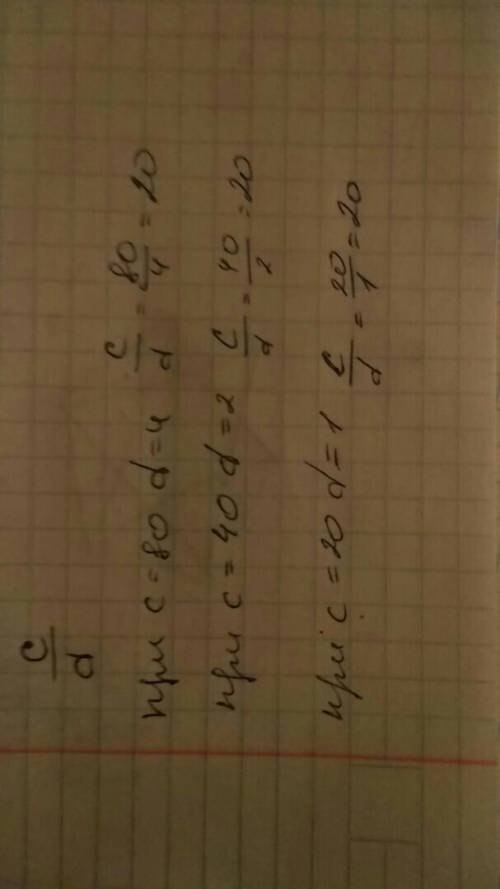 c/d
при c = 80 d = 4 c/d = 80/4 = 20
при c = 40 d = 2 c/d = 40/2 = 20
при c = 20 d = 1 c/d = 20/1 = 20